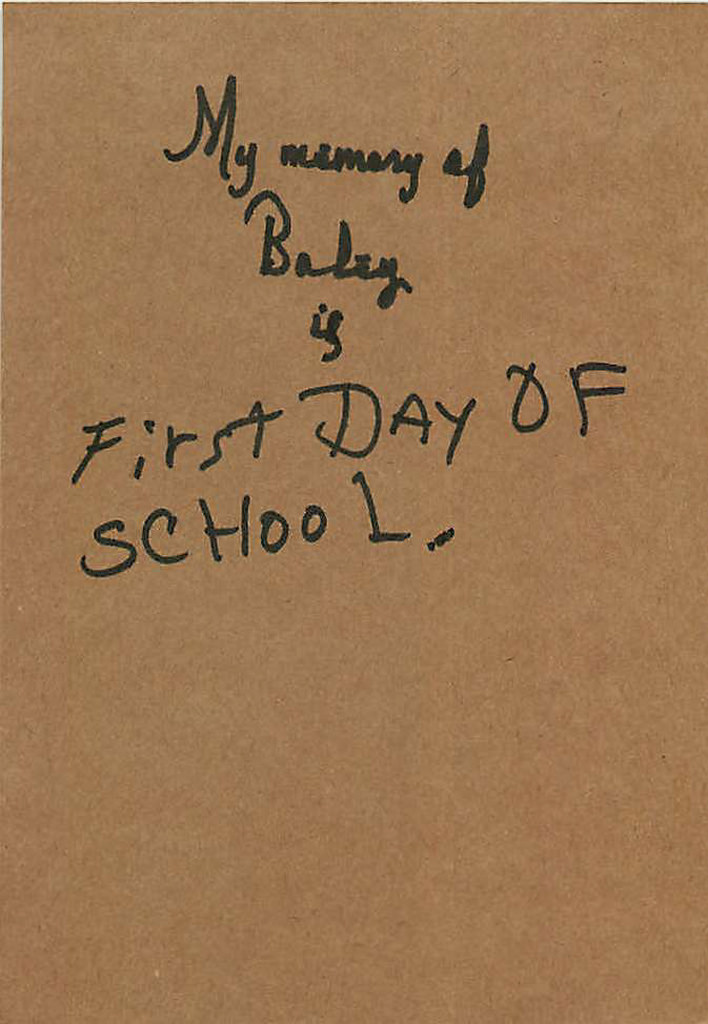 My memory of
Baley
is
First DAY OF
SCHOOL.